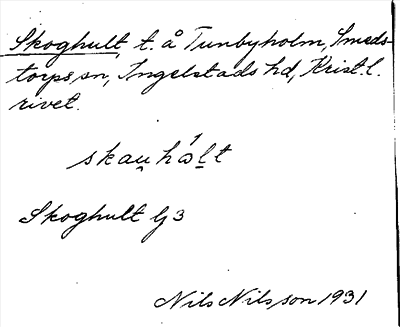 Skoghult, t. å Tunbyholm, Smeds-
torps sn, Ingelstads hd, Krist. l.
rivet.
skau̯hál̠t
Skoghult G3
Nils Nilsson 1931